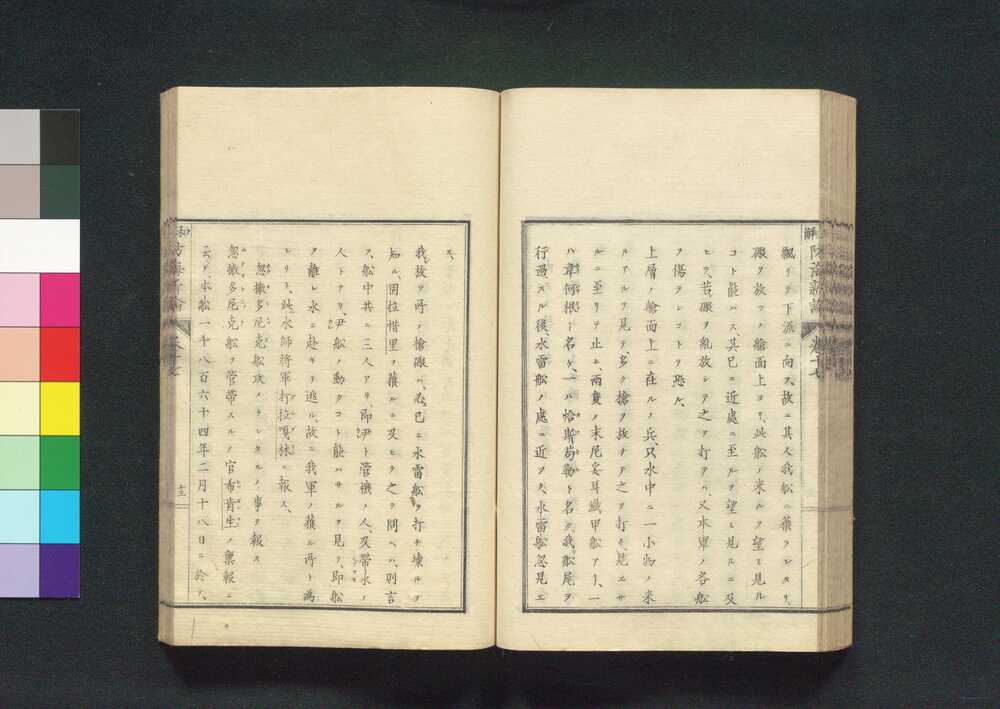 飄リテ下派ニ向フ、故ニ其人我船ニ獲ラレタリ、
礮ヲ放フノ艙面上ヨリ、此船ノ来ルヲ望ミ見ル
コト能ハス、其已ニ近處ニ至ルヲ望ミ見ルニ及
ヒテ、若礮ヲ亂放シテ之ヲ打テハ、又本軍ノ各船
ヲ傷ランコトヲ恐ル、
上層ノ艙面上ニ在ルノ兵、只水中ニ一小物ノ来
ルアルヲ見テ多ク搶ヲ放チテ之ヲ打チ、見エサ
ルニ至リテ止ム、兩隻ノ末尾妥耳鐵甲船アリ、一
ハ韋何根ト名ケ、一ハ恰斯茍勒ト名ク、我船尾ヲ
行過スル後、水雷船ノ處ニ近ツク、水雷船忽見エ
ス、
我放ツ所ノ搶礮ハ、必已ニ水雷船ヲ打チ壊ルヲ
知ル、因拉惜里ヲ獲ルニ及ヒテ之ヲ問ヘハ、則言
フ、船中共ニ三人アリ、即伊ト管機ノ人、及帶水ノ
人トナリ、伊船ノ動クコト能ハサルヲ見テ、即船
ヲ離レ水ニ赴キテ逃ル、故ニ我軍ノ獲ル所ト為
レリト、此水師將軍打拉嘎林ニ報ス、
忽撒多尼克船攻メラレタルノ事ヲ報ス
忽撒多尼克船ヲ管帶スルノ官希肯生ノ稟報ニ
云フ、本船一千八百六十四年二月十八日ニ於テ、
卷十七
十三